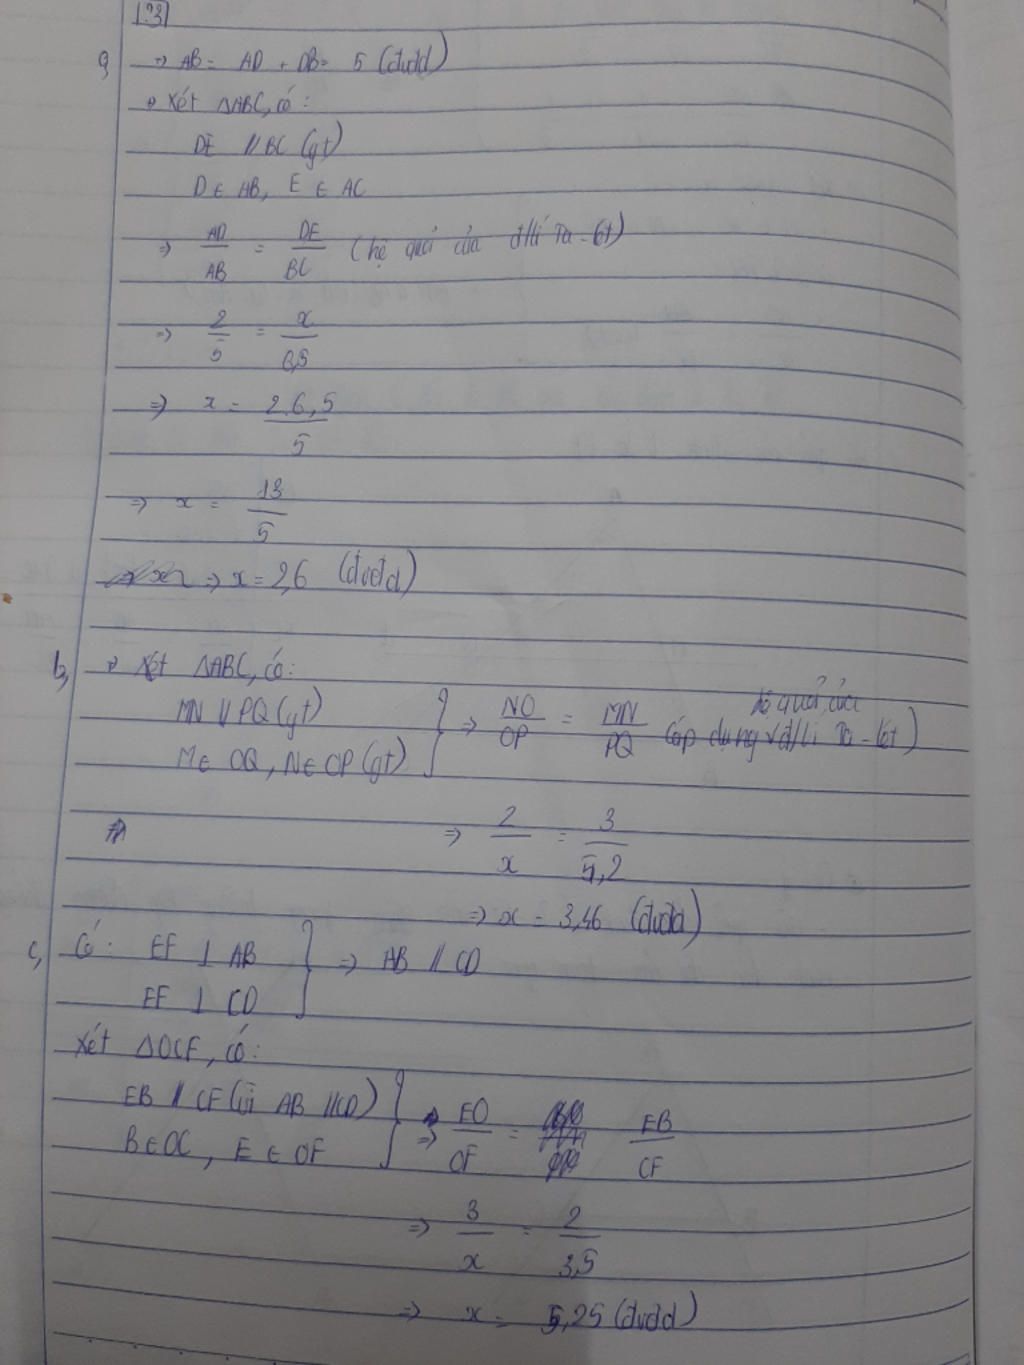 ?3
a, → AB = AD + DB = 5 (đvđd)
→ Xét ΔABC, có:
DE // BC (gt)
D ∈ AB, E ∈ AC
⇒ AD/AB = DE/BC (hệ quả của đ/lí Ta-lét)
⇒ 2/5 = x/6,5
⇒ x = 2.6,5/5
⇒ x = 13/5
⇒ x = 2,6 (đvđd)
b, → Xét ΔABC, có:
MN // PQ (gt)
M ∈ OQ, N ∈ OP (gt) } ⇒ NO/OP = MN/PQ (áp dụng hệ quả của đ/lí Ta-lét)
⇒ 2/x = 3/5,2
⇒ x = 3,46 (đvđd)
c, Có: EF ⊥ AB
EF ⊥ CD } ⇒ AB // CD
Xét ΔOCF, có:
EB // CF (vì AB // CD)
B ∈ OC, E ∈ OF } ⇒ EO/OF = EB/CF
⇒ 3/x = 2/3,5
⇒ x = 5,25 (đvđd)